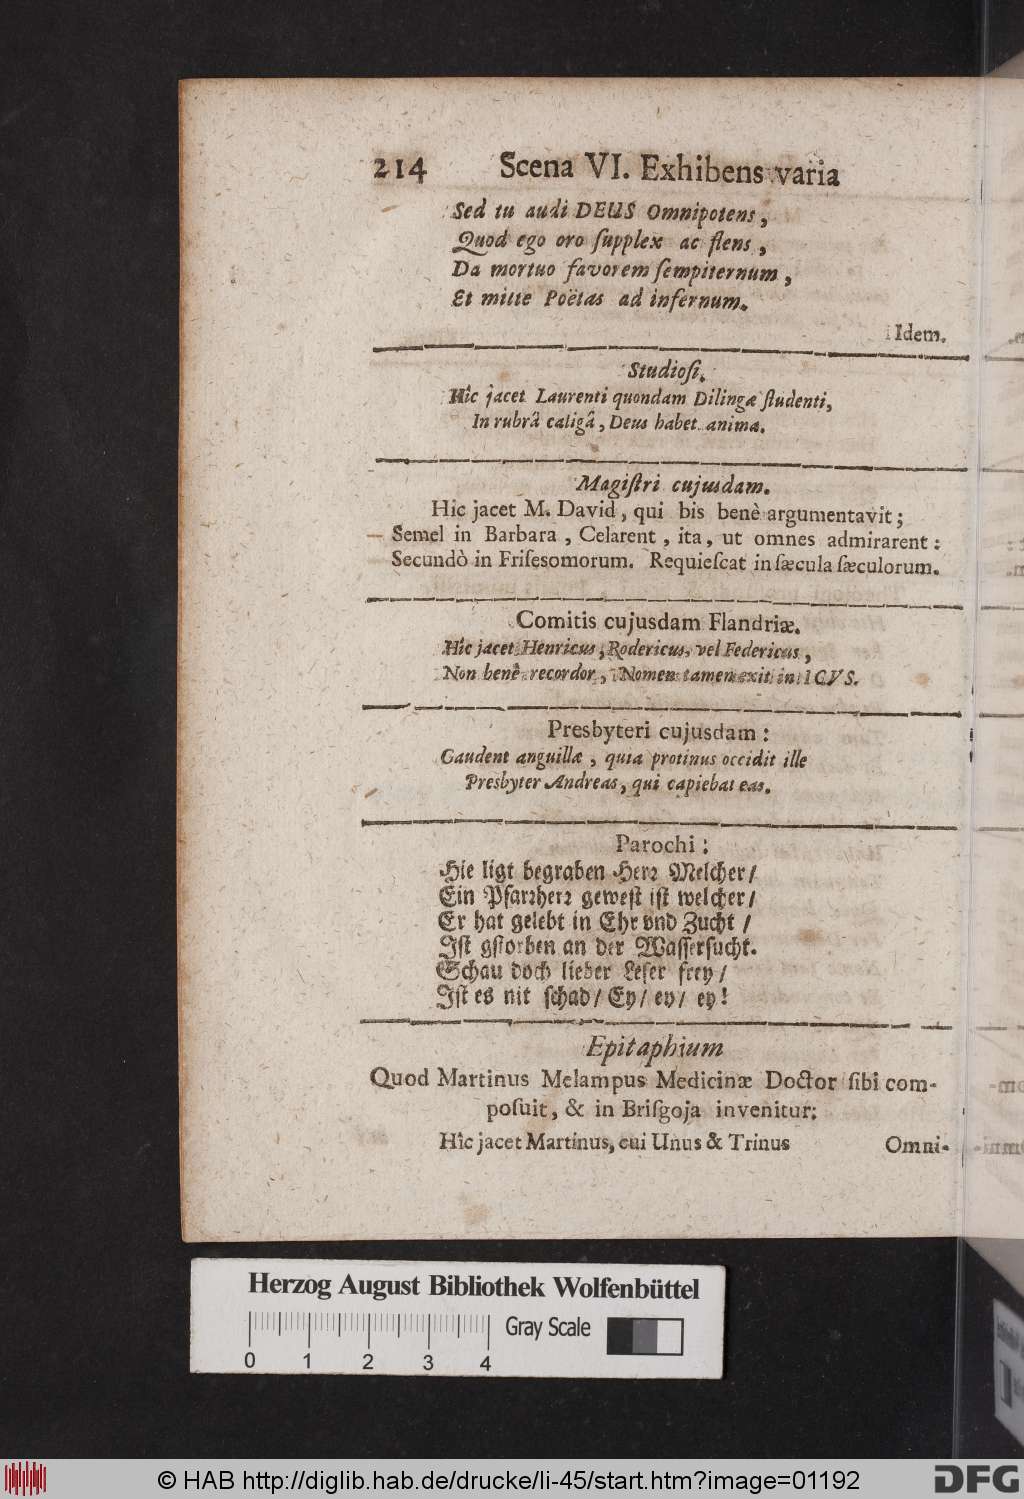 214 Scena VI. Exhibens varia
Sed tu audi DEUS Omnipotens,
Quod ego oro ſupplex ac flens,
Da mortuo favorem ſempiternum,
Et mitte Poëtas ad infernum.
Idem.
Studioſi.
Hîc jacet Laurenti quondam Dilingæ ſtudenti,
In rubrâ caligâ, Deus habet anima.
Magiſtri cujusdam.
Hic jacet M. David, qui bis benè argumentavit;
Semel in Barbara, Celarent, ita, ut omnes admirarent:
Secundò in Friſesomorum. Requieſcat in ſæcula ſæculorum.
Comitis cujusdam Flandriæ.
Hîc jacet Henricus, Rodericus, vel Federicus,
Non benê recordor, Nomen tamen exit in ICVS.
Presbyteri cujusdam:
Gaudent anguillæ, quia protinus occidit ille
Presbyter Andreas, qui capiebat eas.
Parochi:
Hie ligt begraben Herꝛ Melcher/
Ein Pfarꝛherꝛ geweſt iſt welcher/
Er hat gelebt in Ehr vnd Zucht /
Iſt gſtorben an der Waſſerſucht.
Schau doch lieber Leſer frey/
Iſt es nit ſchad/ Ey/ ey/ ey!
Epitaphium
Quod Martinus Melampus Medicinæ Doctor ſibi com-
poſuit, & in Briſgoja invenitur:
Hîc jacet Martinus, cui Unus & Trinus
Omni-
Herzog August Bibliothek Wolfenbüttel
Gray Scale
0 1 2 3 4
© HAB http://diglib.hab.de/drucke/li-45/start.htm?image=01192
DFG